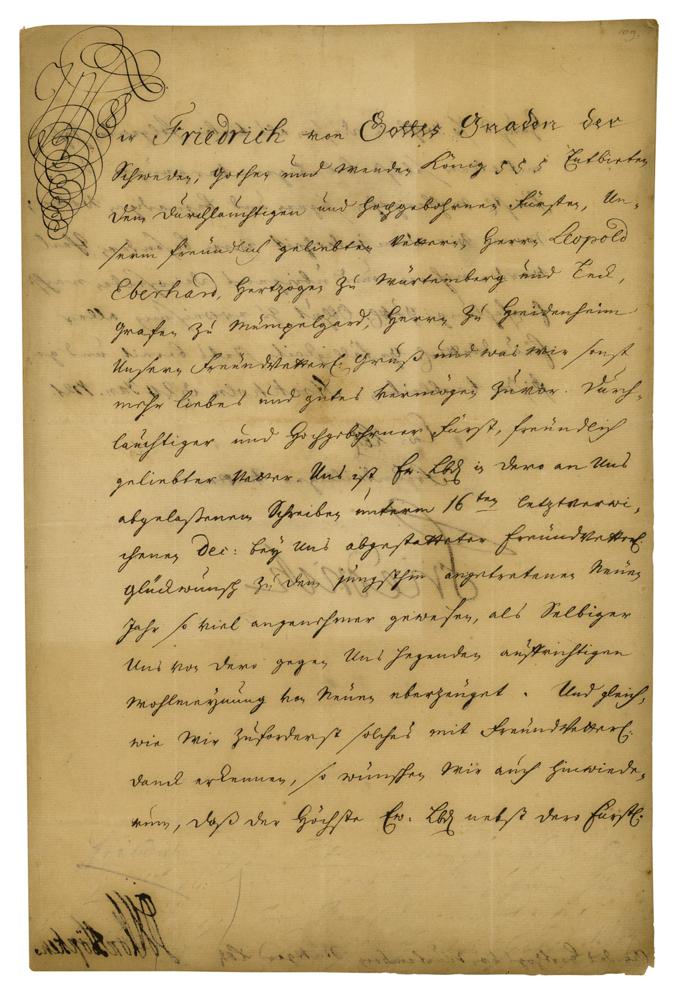 Wir Friedrich von Gottes Gnaden der
Schweden, Gothen und Wenden König Entbieten
dem durchlauchtigen und hochgebohrnen Fürsten, Un-
serm freundlich geliebten Vettern, Herrn Leopold
Eberhard, Hertzogen zu Würtemberg und Teck,
Grafen zu Mümpelgard, Herrn zu Heidenheim
Unsern Freundvetterl: Gruß und was wir sonst
mehr liebes und gutes vermögen zuvor. Durch-
lauchtiger und Hochgebohrner Fürst, freundlich
geliebter Vetter. Uns ist Ew. Lbd in dero an Uns
abgelaßenem Schreiben unterm 16ten letztverwi-
chenen Dec: bey Uns abgestatteter Freundvetterl
glückwunsch zu dem jüngsthin angetretenen Neuen
Jahr so viel angenehmer gewesen, als Selbiger
Uns von dero gegen Uns hegenden auffrichtigen
wohlmeynung von Neuen überzeuget. Und gleich-
wie Wir zuforderst solches mit Freundvetterl:
danck erkennen, so wünschen Wir auch hinwiede-
rum, daß der Höchste Ew. Lbd nebst dero Fürstl: